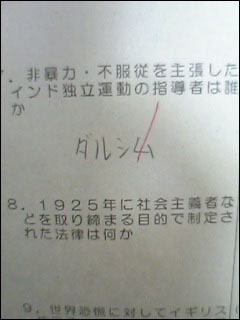 7．非暴力・不服従を主張した
インド独立運動の指導者は誰
か
ダルシム
8．1925年に社会主義者な
どを取り締まる目的で制定さ
れた法律は何か
9．世界恐慌に対してイギリス